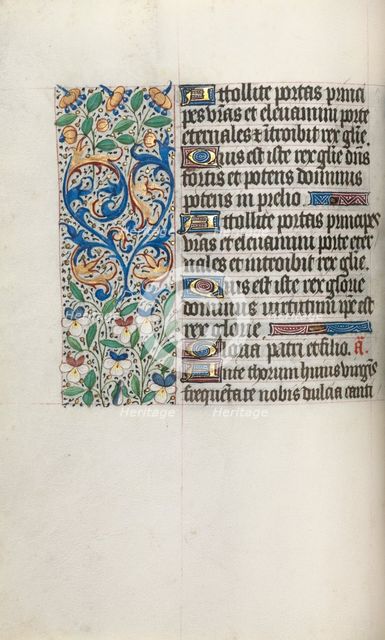 Attollite portas princi
pes vr̃as et eleuamini porte
eternales ⁊ itroibit rex gl̃ie.
Quis est iste rex gl̃ie dñs
fortis et potens dominus
potens in prelio
Attollite portas principes
vr̃as et eleuamini porte eter
nales et introibit rex gl̃ie.
Quis est iste rex glorie
dominus uirtutum ipẽ est
rex glorie
Gloria patri et filio. a᷈.
Ante thorum huius virgĩs
frequẽtate nobis dulcia canti
heritage images
Heritage
Heritage